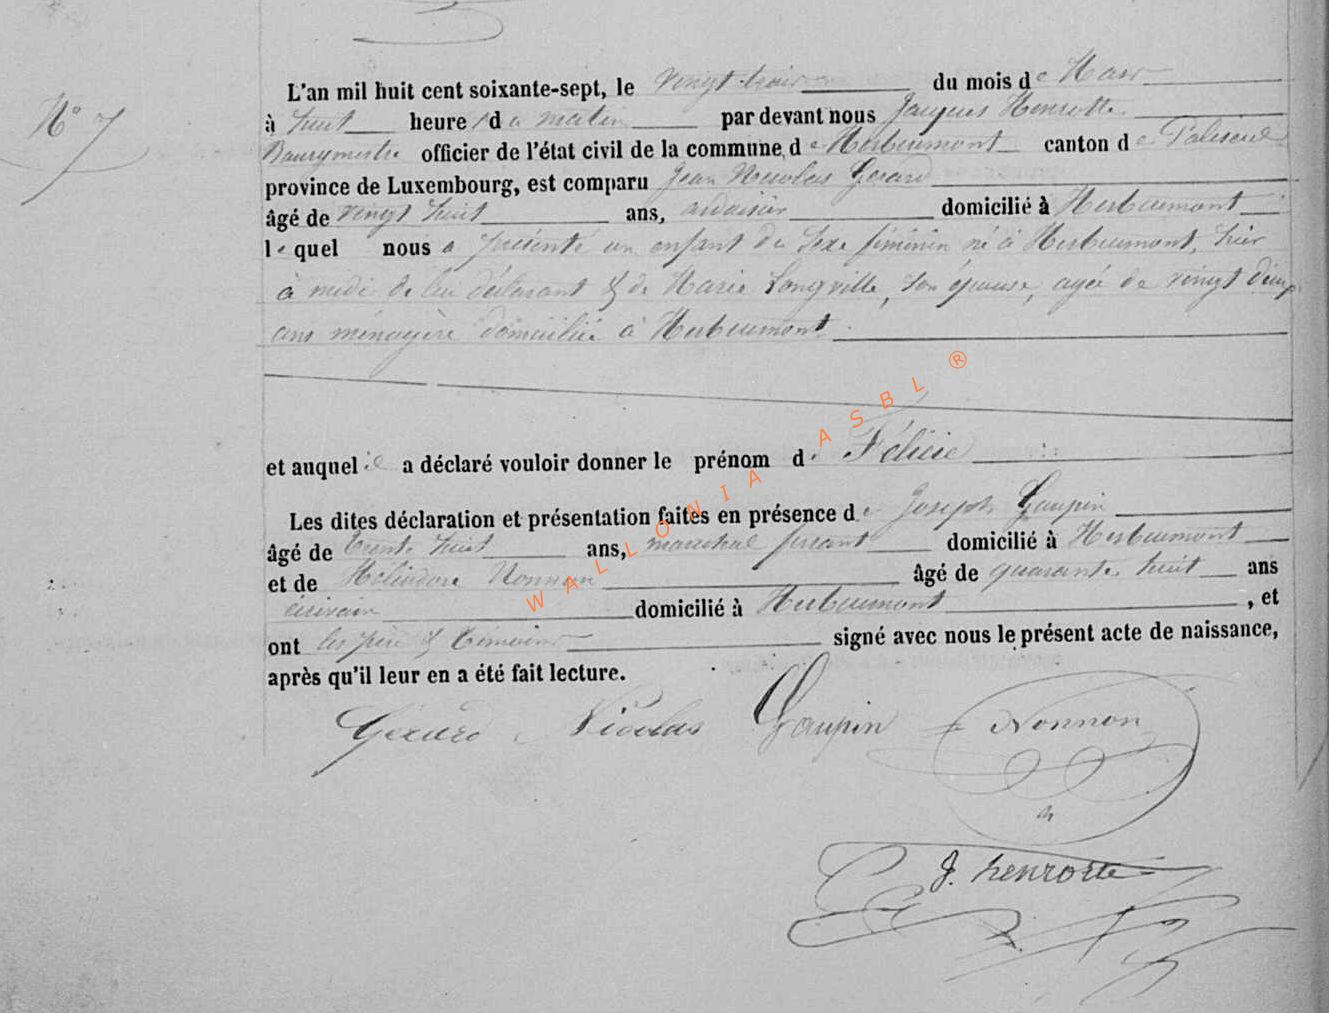 N° 7
L'an mil huit cent soixante-sept, le vingt trois du mois de Mars
à huit heures du matin par devant nous Jacques Henrotte
Bourgmestre officier de l'état civil de la commune de Herbeumont canton de Paliseul
province de Luxembourg, est comparu Jean Nicolas Gerard
âgé de vingt huit ans, ardoisier domicilié à Herbeumont
lequel nous a présenté un enfant du sexe féminin né à Herbeumont, hier
à midi de lui déclarant & de Marie Longville, son épouse, agée de vingt deux
ans ménagère domiciliée à Herbeumont.
et auquel il a déclaré vouloir donner le prénom de Félicie
Les dites déclaration et présentation faites en présence de Joseph Gaupin
âgé de trente huit ans, maréchal ferrant domicilié à Herbeumont
et de Héliodore Nonnon âgé de quarante huit ans
écrivain domicilié à Herbeumont, et
ont les père & témoins signé avec nous le présent acte de naissance,
après qu'il leur en a été fait lecture.
Gérard Nicolas Gaupin Nonnon
J. henrotte
WALLONIA ASBL ®